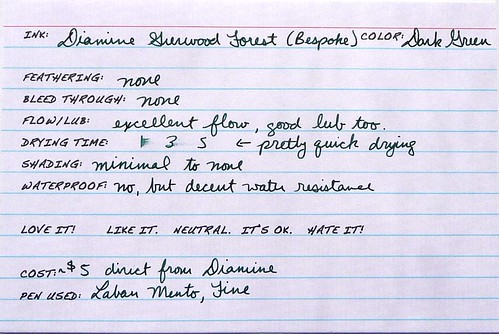 INK: Diamine Sherwood Forest (Bespoke) COLOR: Dark Green
FEATHERING: none
BLEED THROUGH: none
FLOW/LUB: excellent flow, good lub too.
DRYING TIME: 1 3 5 ← pretty quick drying
SHADING: minimal to none
WATERPROOF: no, but decent water resistance
LOVE IT! LIKE IT. NEUTRAL. IT'S OK. HATE IT!
COST: ~$5 direct from Diamine
PEN USED: Laban Mento, Fine